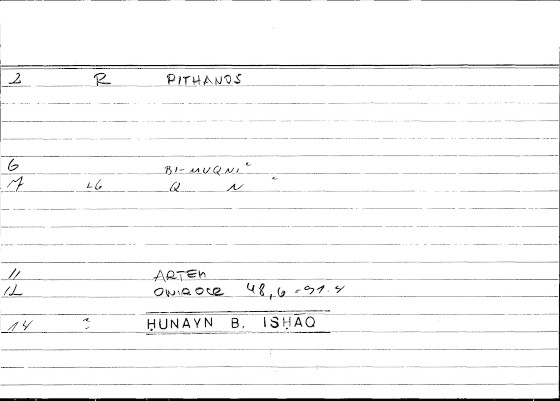 2 R PITHANOS
6 BI-MUQNIʿ
7 26 Q N ʿ
11 ARTEM
12 ONIROCR 48,6 = 91.4
14 ḤUNAYN B. ISḤĀQ